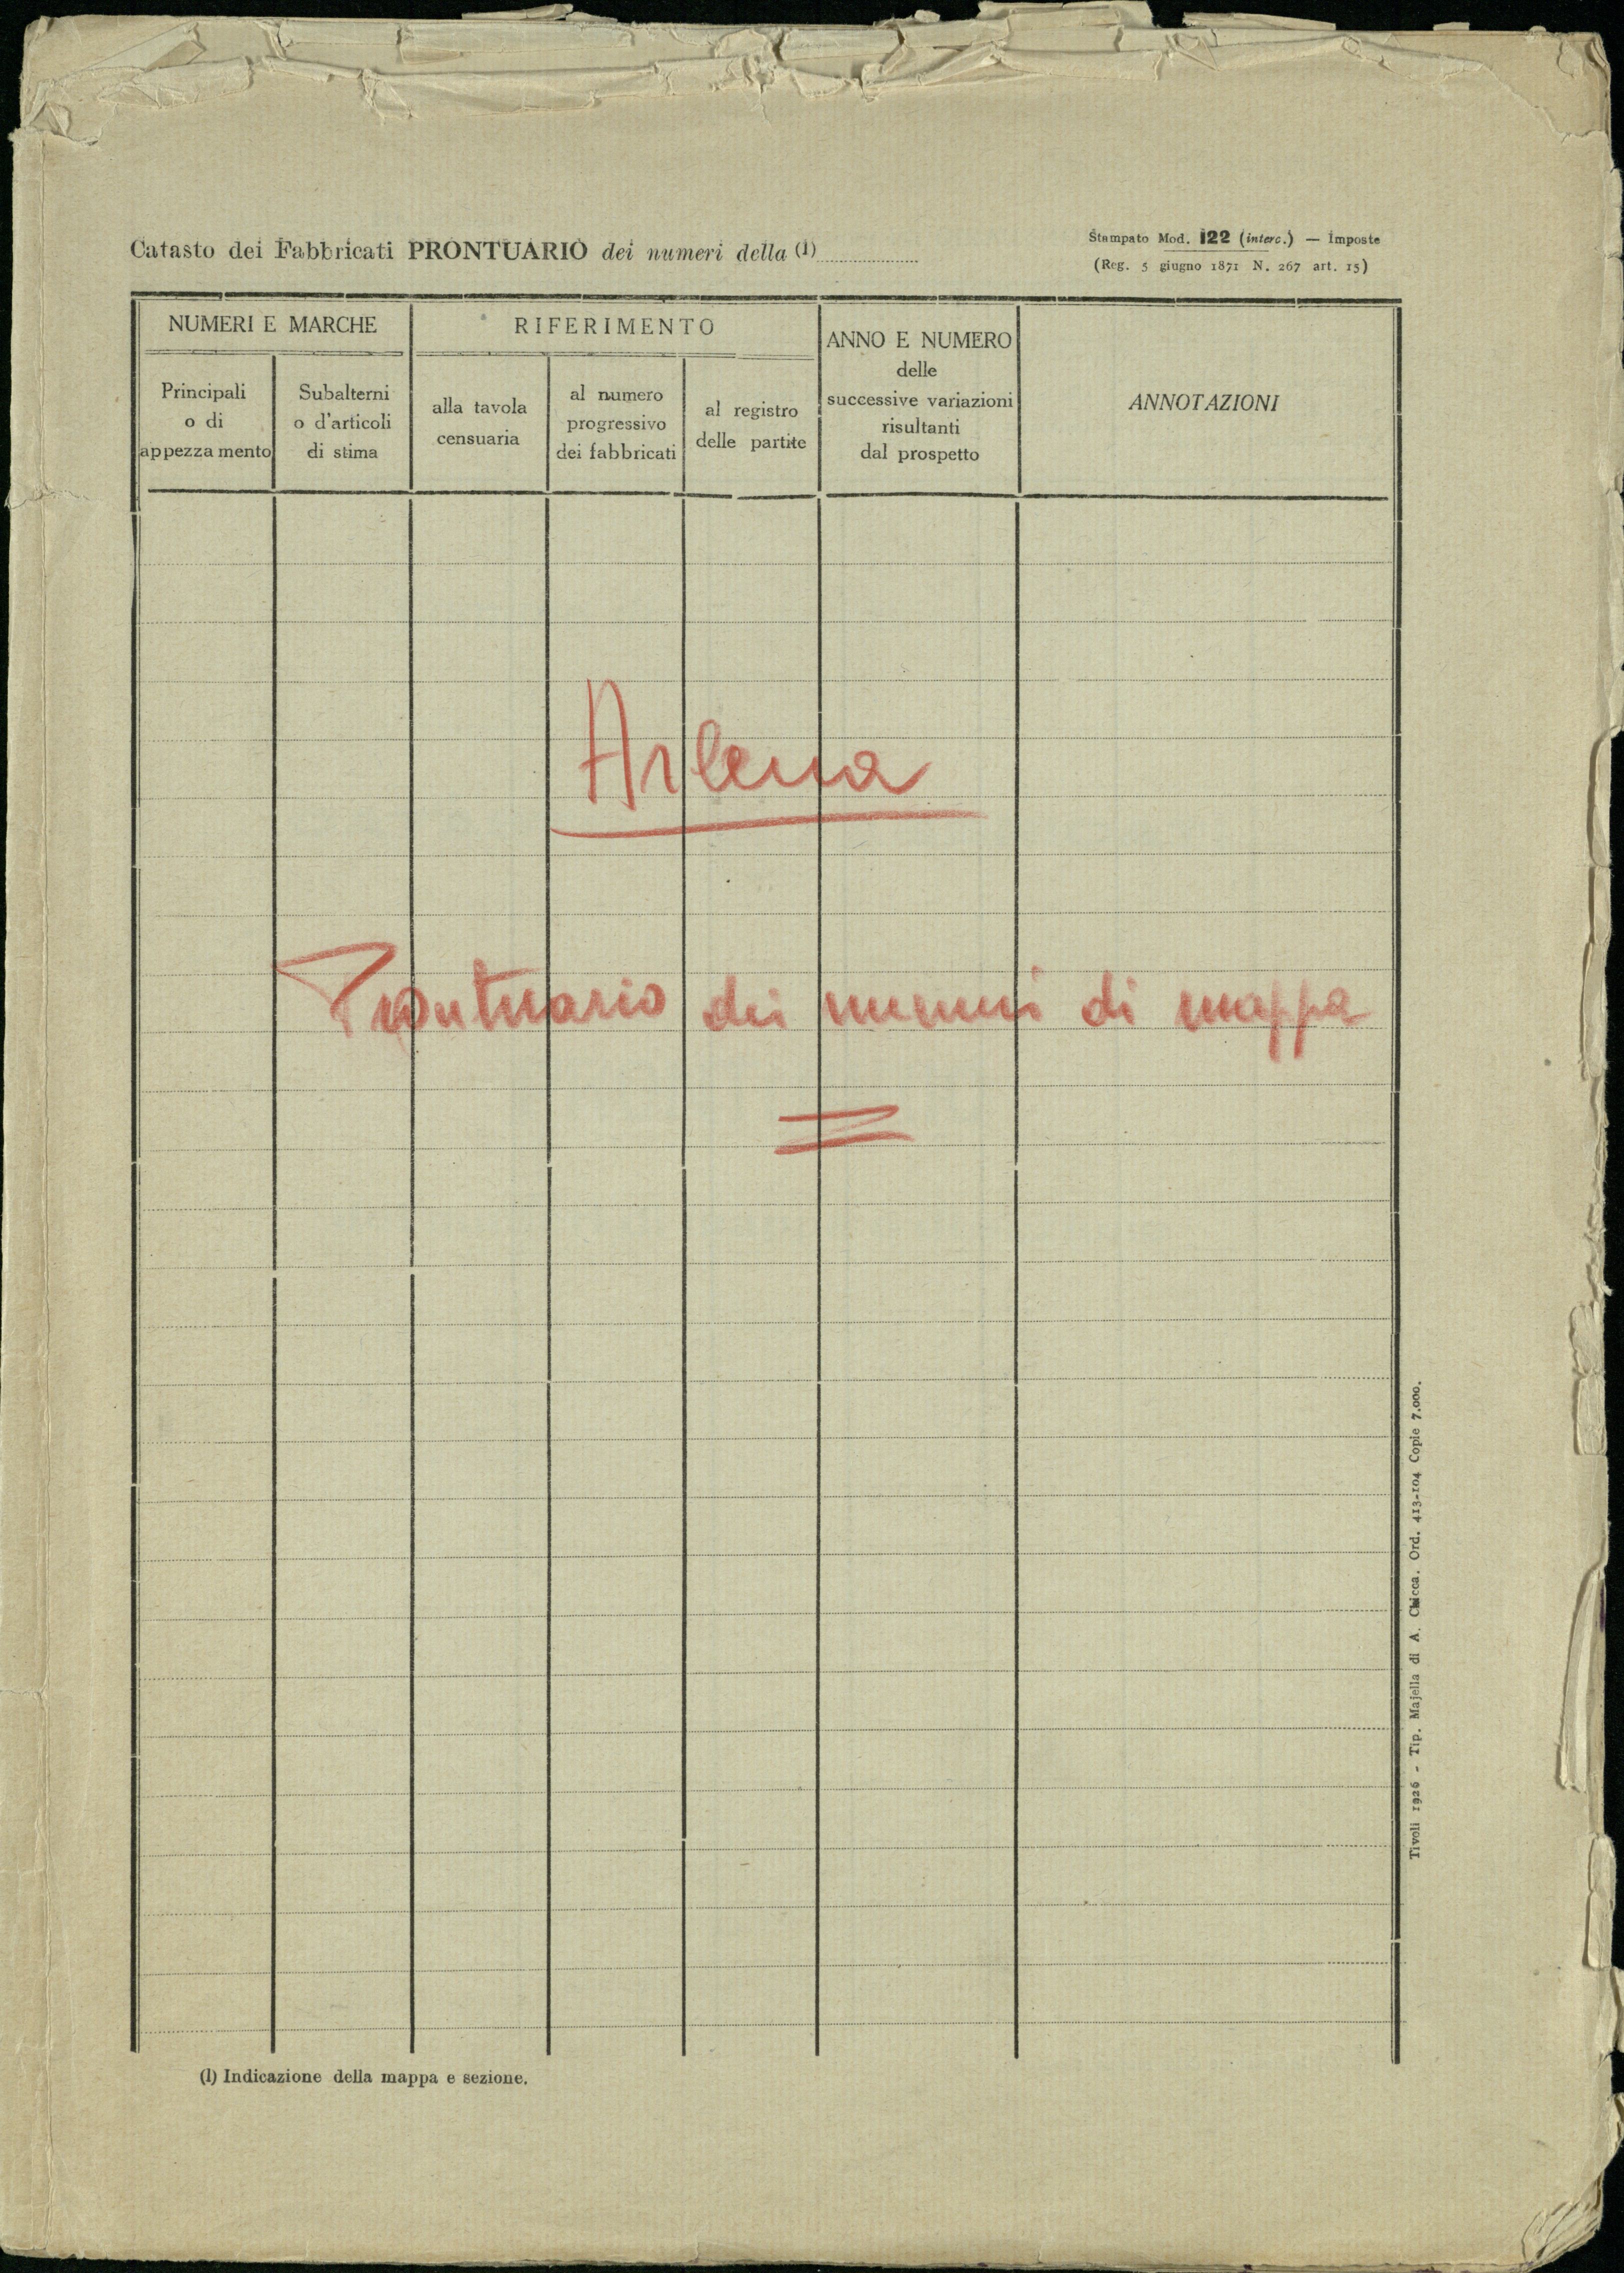 Catasto dei Fabbricati PRONTUARIO dei numeri della (1)
Stampato Mod. 122 (interc.) — Imposte
(Reg. 5 giugno 1871 N. 267 art. 15)
NUMERI E MARCHE
RIFERIMENTO
ANNO E NUMERO
delle
successive variazioni
risultanti
dal prospetto
ANNOTAZIONI
Principali
o di
appezzamento
Subalterni
o d'articoli
di stima
alla tavola
censuaria
al numero
progressivo
dei fabbricati
al registro
delle partite
Arlena
Prontuario dei numeri di mappa
Tivoli 1926 - Tip. Majella di A. Chicca. Ord. 413-104 Copie 7.000.
(1) Indicazione della mappa e sezione.